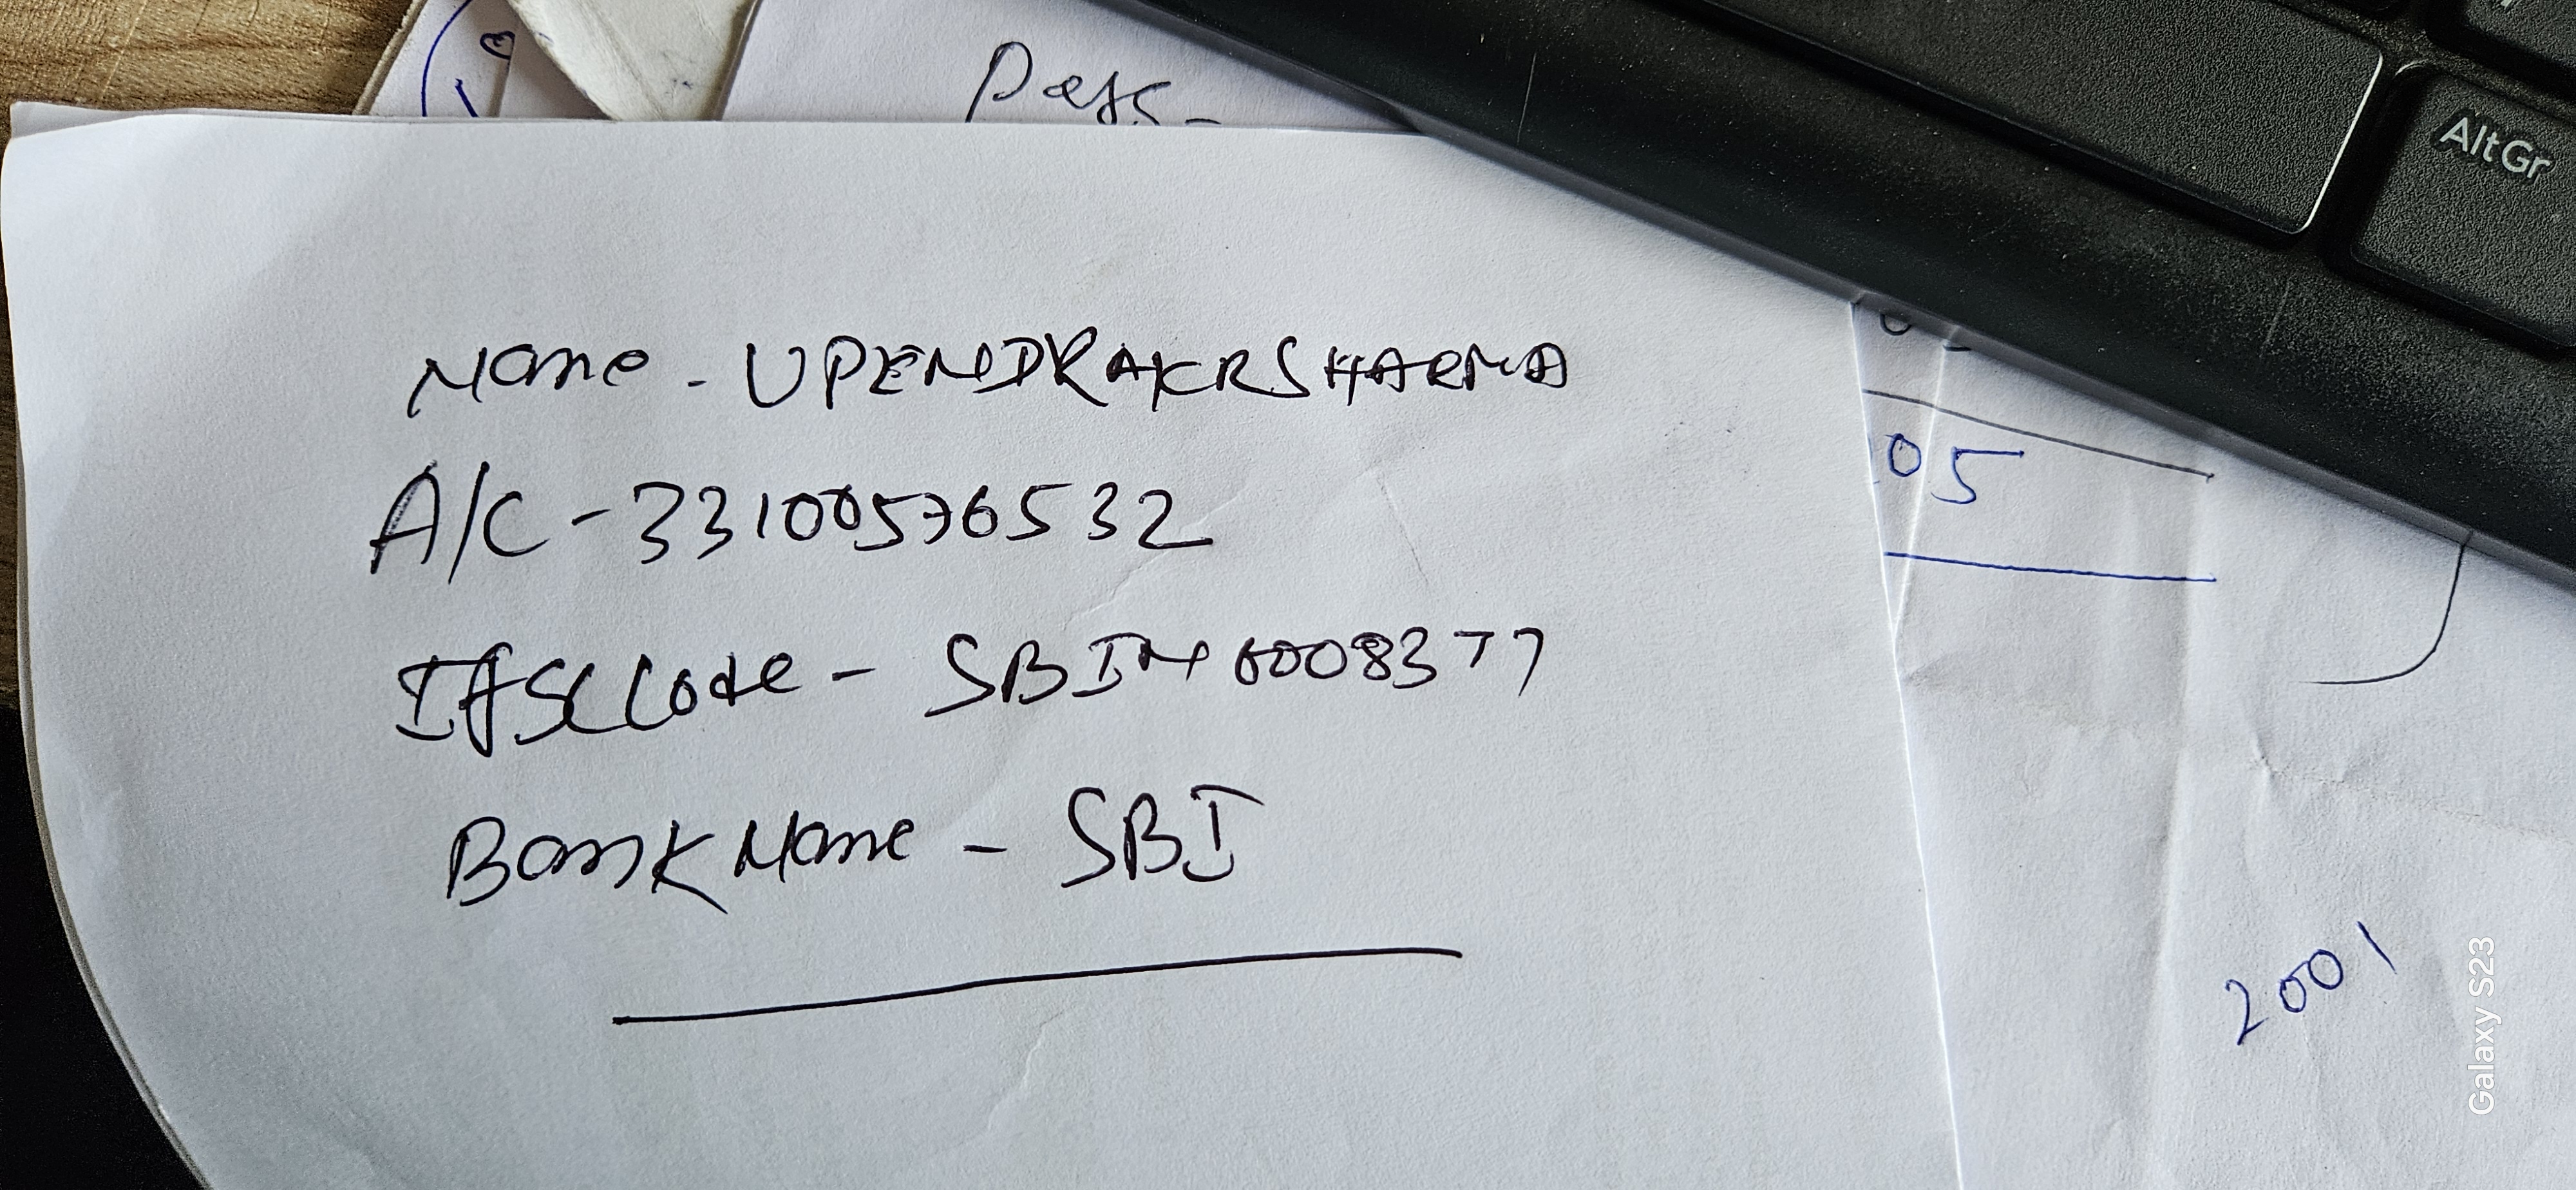 Pass-
Name - UPENDRAKRSHARMA
A/C - 33100576532
IFSC Code - SBIN0008377
Bank Name - SBI
05
2001
AltGr
Galaxy S23